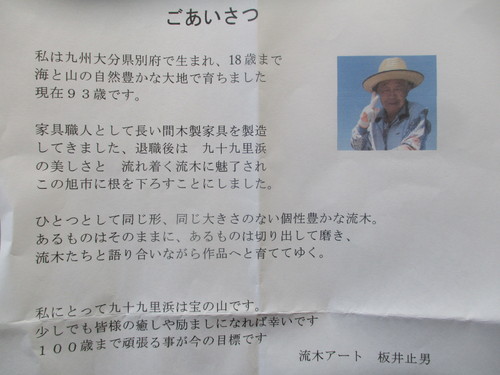 ごあいさつ
私は九州大分県別府で生まれ、18歳まで
海と山の自然豊かな大地で育ちました
現在９３歳です。
家具職人として長い間木製家具を製造
してきました、退職後は　九十九里浜
の美しさと　流れ着く流木に魅了され
この旭市に根を下ろすことにしました。
ひとつとして同じ形、同じ大きさのない個性豊かな流木。
あるものはそのままに、あるものは切り出して磨き、
流木たちと語り合いながら作品へと育ててゆく。
私にとって九十九里浜は宝の山です。
少しでも皆様の癒しや励ましになれば幸いです
１００歳まで頑張る事が今の目標です
流木アート　板井止男